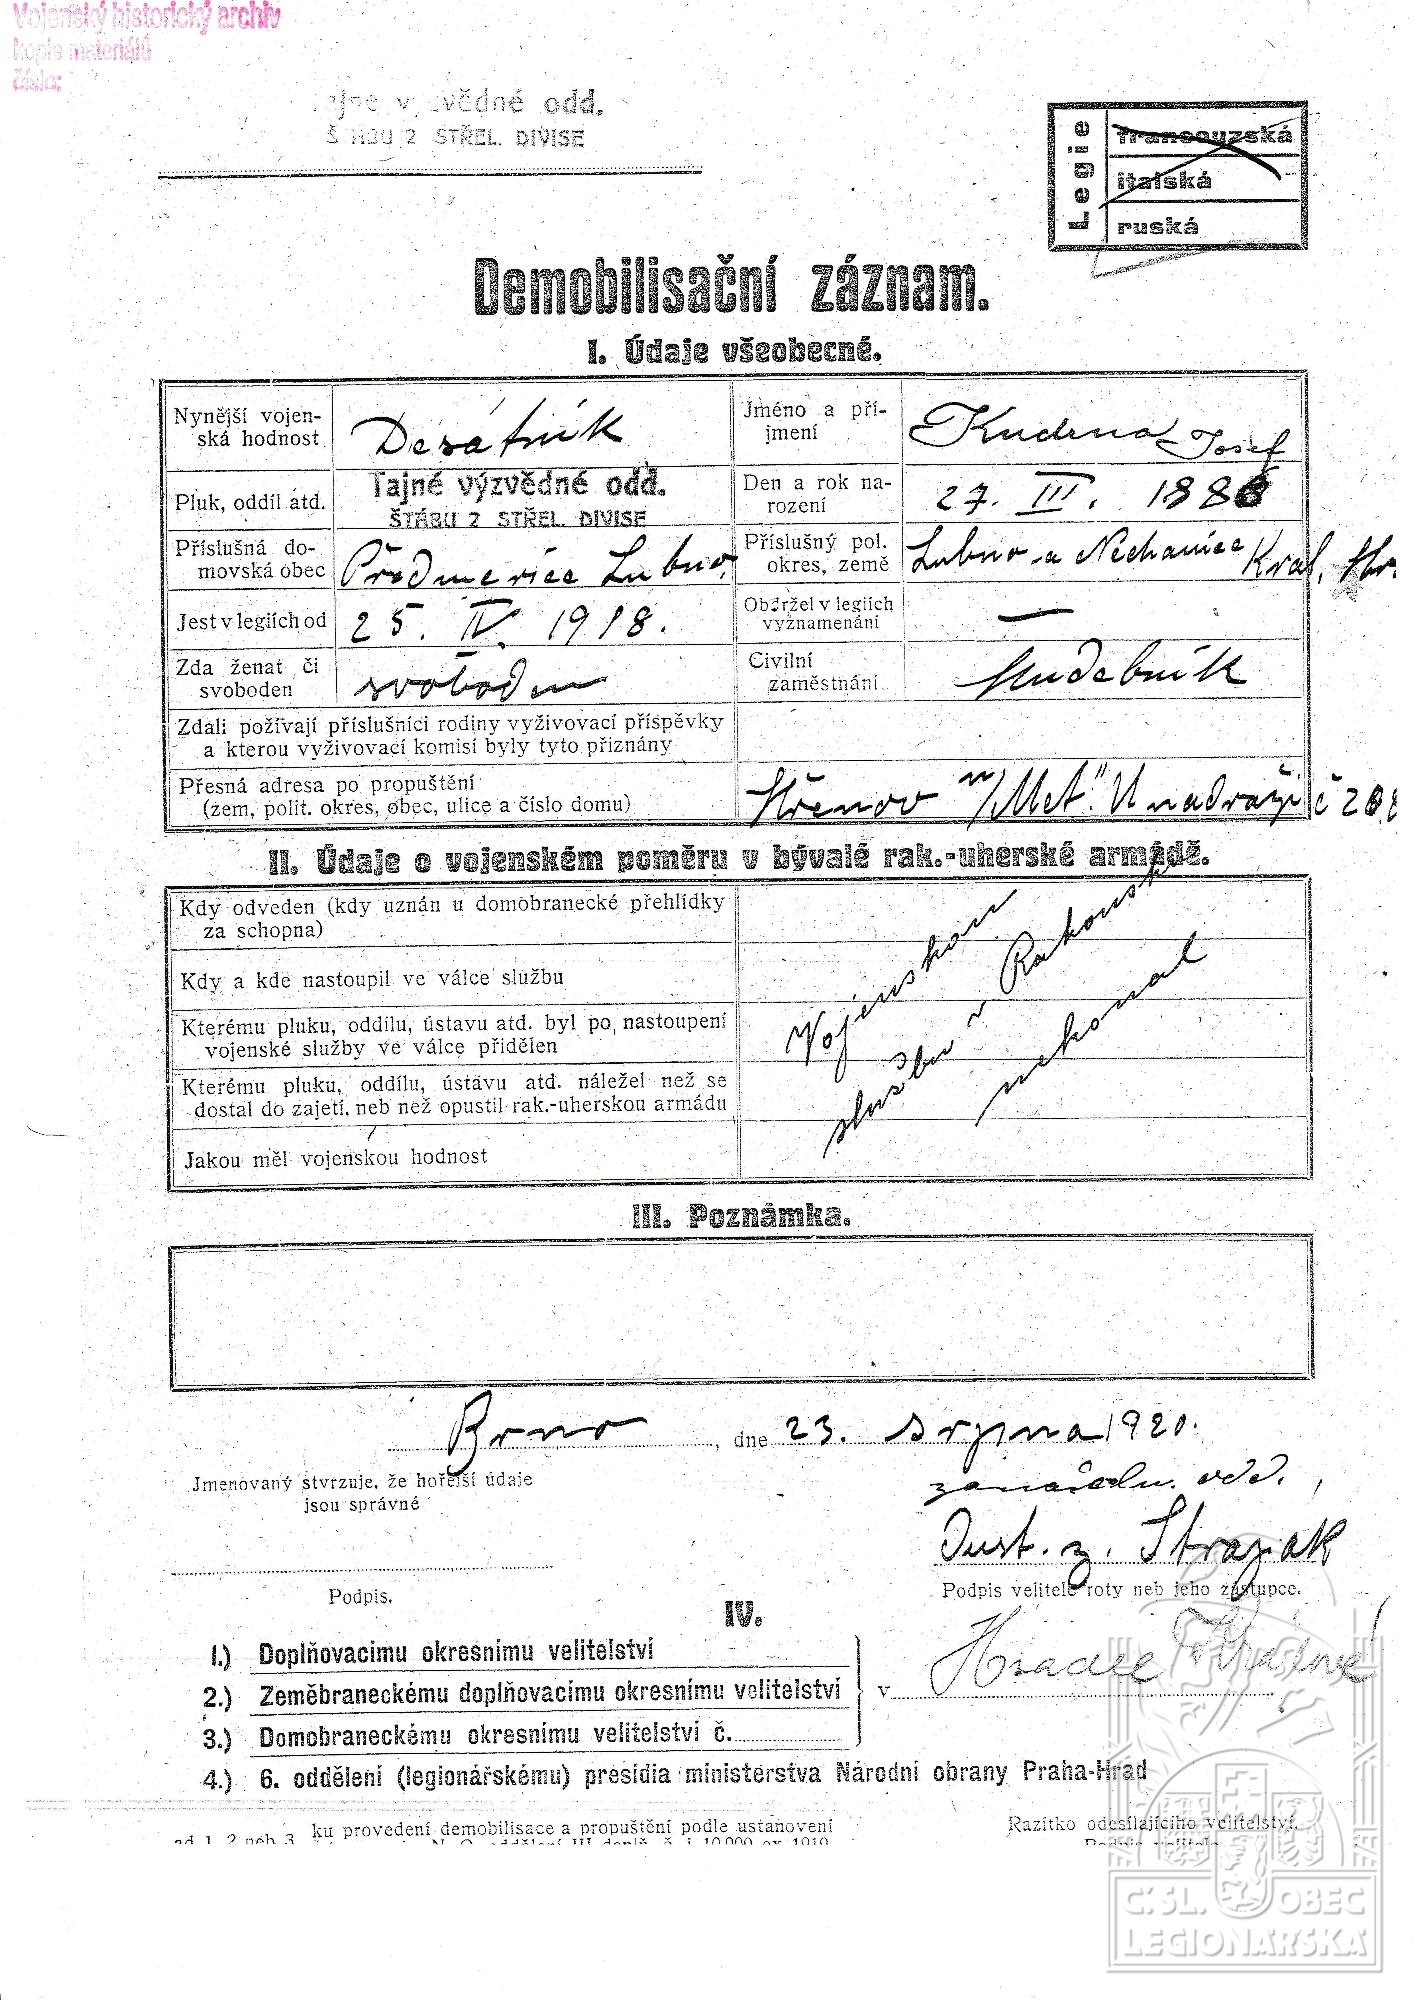 Vojenský historický archiv
kopie materiálů
číslo:
výzvědné odd.
2 STŘEL. DIVISE
Legie
francouzská
italská
ruská
Demobilisační záznam.
I. Údaje všeobecné.
Nynější vojen-
ská hodnost
Desátník
Jméno a pří-
jmení
Kudrna Josef
Pluk, oddíl atd.
Tajné výzvědné odd.
ŠTÁBU 2 STŘEL. DIVISE
Den a rok na-
rození
27. III. 1886
Příslušná do-
movská obec
Předmeřice Lubno
Příslušný pol.
okres, země
Lubno a Nechanice Král. Hr.
Jest v legiích od
25. IV. 1918.
Obdržel v legiích
vyznamenání
—
Zda ženat či
svoboden
svoboden
Civilní
zaměstnání
Hudebník
Zdali požívají příslušníci rodiny vyživovací příspěvky
a kterou vyživovací komisí byly tyto přiznány
Přesná adresa po propuštění
(zem, polit. okres, obec, ulice a číslo domu)
n/Met. U nadraži č
II. Údaje o vojenském poměru v bývalé rak.-uherské armádě.
Kdy odveden (kdy uznán u domobranecké přehlídky
za schopna)
Kdy a kde nastoupil ve válce službu
Kterému pluku, oddílu, ústavu atd. byl po nastoupení
vojenské služby ve válce přidělen
Kterému pluku, oddílu, ústavu atd. náležel než se
dostal do zajetí, neb než opustil rak.-uherskou armádu
Jakou měl vojenskou hodnost
Vojenskou
službu v Rakousku
nekonal
III. Poznámka.
Brno, dne 23. srpna 1920.
Jmenovaný stvrzuje, že hořejší údaje
jsou správné
odd.
Podpis.
Podpis velitele roty neb jeho zástupce.
IV.
1.) Doplňovacímu okresnímu velitelství
2.) Zeměbraneckému doplňovacímu okresnímu velitelství
3.) Domobraneckému okresnímu velitelství č.
v Hradec Králové
4.) 6. oddělení (legionářskému) presidia ministerstva Národní obrany Praha-Hrad
ad 1, 2 neb 3 ku provedení demobilisace a propuštění podle ustanovení
Razítko odesílajícího velitelství.
Č.SL. OBEC
LEGIONÁŘSKÁ